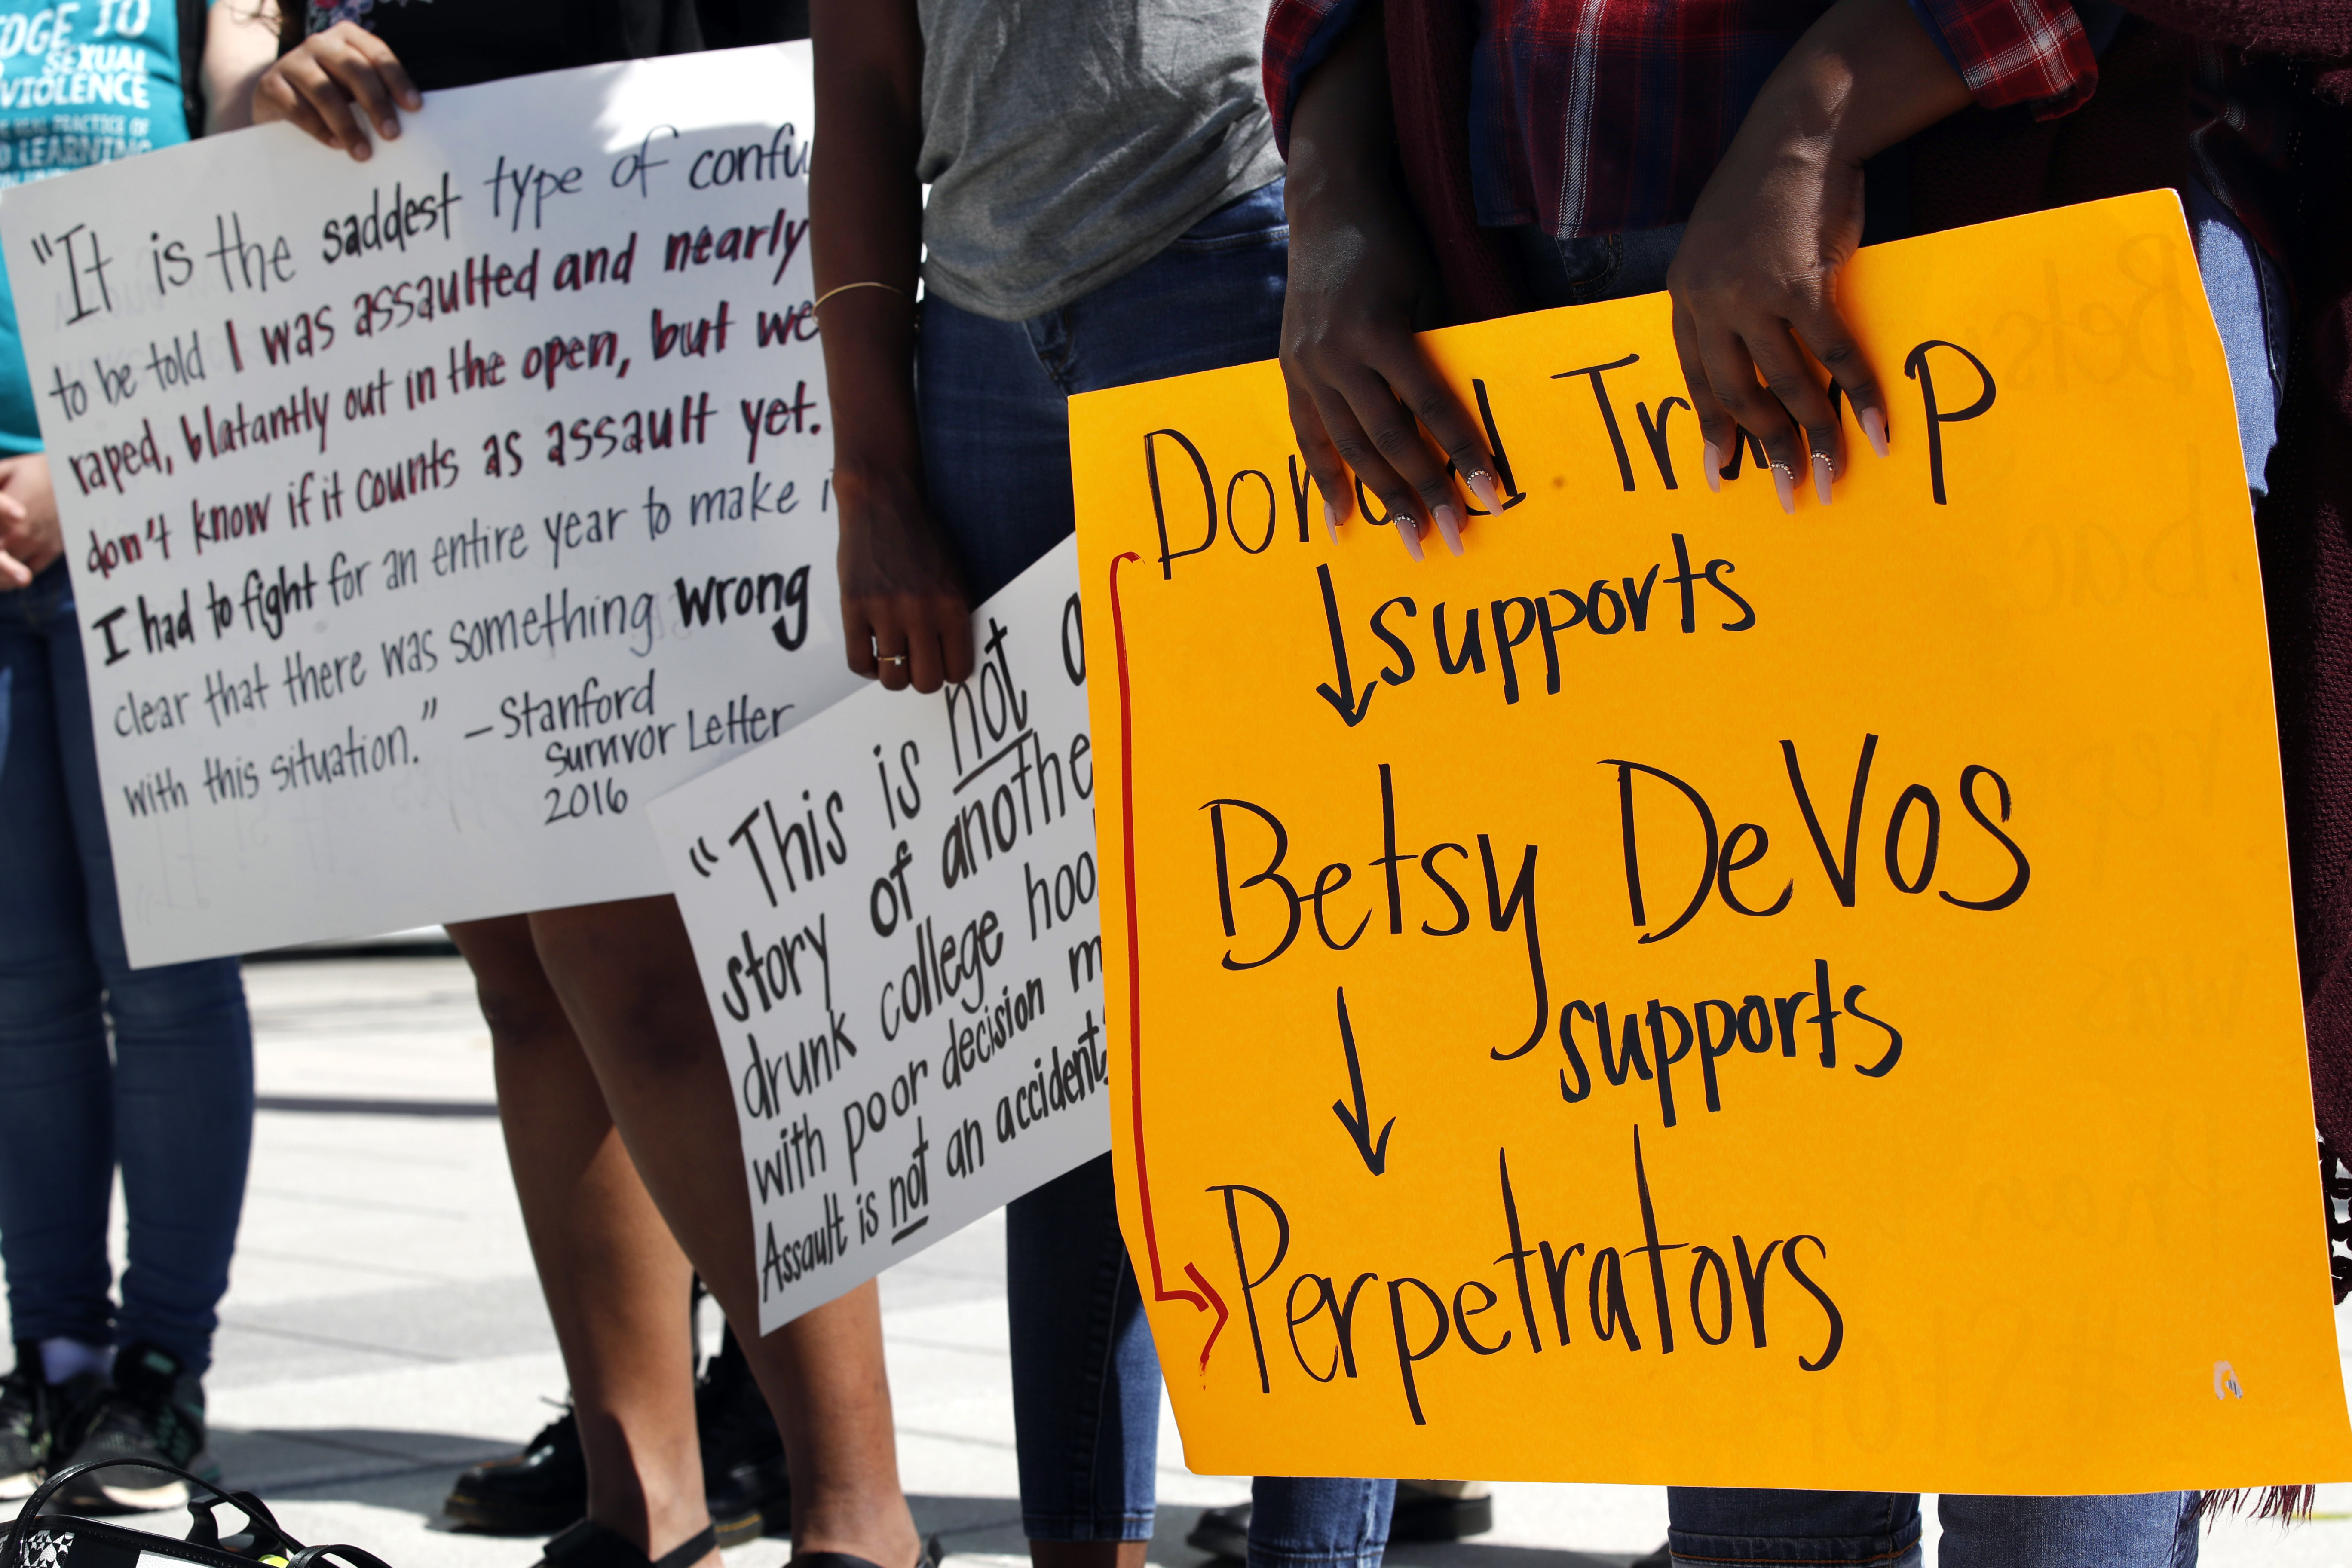 TO
SEXUAL
VIOLENCE
PRACTICE OF
LEARNING
"It is the saddest type of confu
to be told I was assaulted and nearly
raped, blatantly out in the open, but we
don't know if it counts as assault yet.
I had to fight for an entire year to make i
clear that there was something wrong
with this situation." - Stanford
Survivor Letter
2016
"This is not a
story of anothe
drunk college hoo
with poor decision m
Assault is not an accident
Donald Trump
supports
Betsy DeVos
supports
Perpetrators